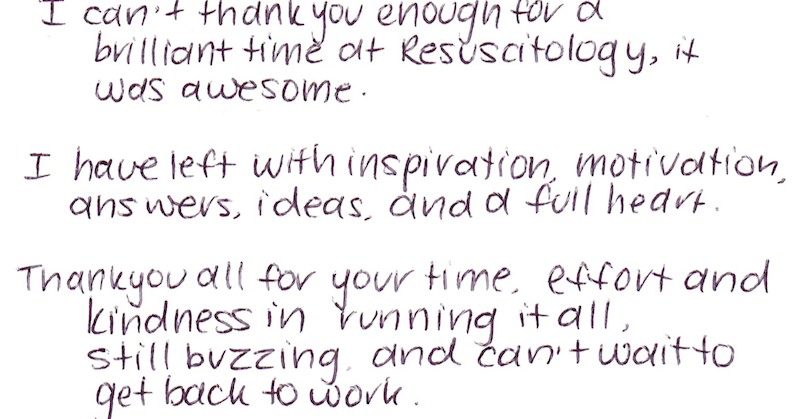 I can't thankyou enough for a
brilliant time at Resuscitology, it
was awesome.
I have left with inspiration, motivation,
answers, ideas, and a full heart.
Thankyou all for your time, effort and
kindness in running it all,
still buzzing, and can't wait to
get back to work.